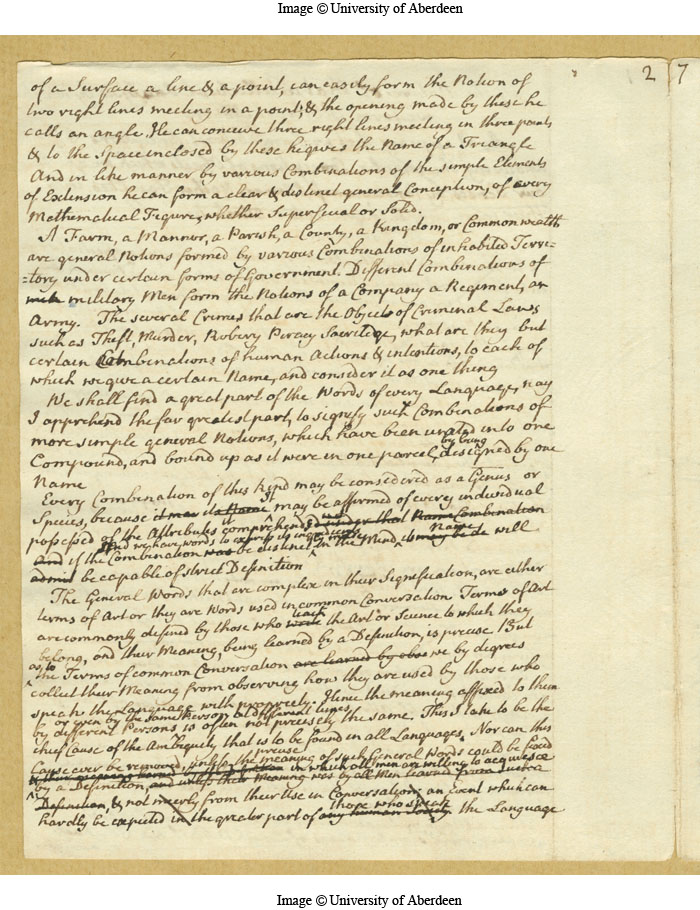 Image © University of Aberdeen
2 7
of a Surface a line & a point, can easily form the Notion of
two right lines meeting in a point; & the opening made by these he
calls an angle. He can conceive three right lines meeting in three points
& to the Space inclosed by these he gives the Name of a Triangle
And in like manner by various Combinations of the simple Elements
of Extension he can form a clear & distinct general Conception, of every
Mathematical Figure, whether Superficial or Solid.
A Farm, a Mannor, a Parish, a County, a Kingdom, or Common wealth
are general Notions formed by various Combinations of inhabited Terri-
-tory under certain forms of Government. Different Combinations of
military Men form the Notions of a Company a Regiment, an
Army. The several Crimes that are the Objects of Criminal Laws
such as Theft, Murder, Robery Piracy Sacriledge, what are they but
certain Combinations of human Actions & intentions, to each of
which we give a certain Name, and consider it as one thing
We shall find a great part of the Words of every Language, nay
I apprehend the far greatest part, to signify such Combinations of
more simple general Notions, which have been united into one
by being
Compound, and bound up as it were in one parcel, designed by one
Name
Every Combination of this kind may be considered as a Genus or
it
Species, because it may its Name may be affirmed of every individual
it
possessed of the Attributes comprehends under that Name Combination
And we have words to express its ingredients Name
and if the Combination was be distinct in the Mind, may be de will
admit be capable of strict Definition
The General Words that are complex in their Signification, are either
terms of Art or they are Words used in common Conversation Terms of Art
teach
are commonly defined by those who write the Art or Science to which they
belong, and their Meaning, being learned by a Definition, is precise But
as to
the Terms of common Conversation are learned by obse we by degrees
collect their Meaning from observing how they are used by those who
speak the Language with propriety. Hence the meaning affixed to them
or even by the same Person at different times,
by different Persons is often not precisely the same. This I take to be the
chief Cause of the Ambiguity that is to be found in all Languages, Nor can this
precise
Cause ever be removed, unless the meaning of such General Words could be fixed
in which all men are willing to acquiesce
by a Definition, and unless their Meaning was by all Men learned from such a
Definition, & not merely from their Use in Conversation; an Event which can
those who speak
hardly be expected in the greater part of any human Society the Language
Image © University of Aberdeen